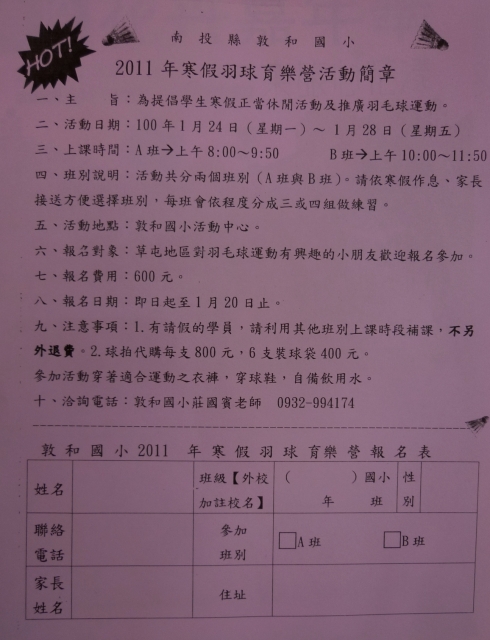 HOT!
南投縣敦和國小
2011年寒假羽球育樂營活動簡章
一、主　　旨：為提倡學生寒假正當休閒活動及推廣羽毛球運動。
二、活動日期：100年1月24日（星期一）～1月28日（星期五）
三、上課時間：A班→上午8:00～9:50　　　B班→上午10:00～11:50
四、班別說明：活動共分兩個班別（A班與B班）。請依寒假作息、家長
接送方便選擇班別，每班會依程度分成三或四組做練習。
五、活動地點：敦和國小活動中心。
六、報名對象：草屯地區對羽毛球運動有興趣的小朋友歡迎報名參加。
七、報名費用：600元。
八、報名日期：即日起至1月20日止。
九、注意事項：1.有請假的學員，請利用其他班別上課時段補課，不另
外退費。2.球拍代購每支800元，6支裝球袋400元。
參加活動穿著適合運動之衣褲，穿球鞋，自備飲用水。
十、洽詢電話：敦和國小莊國賓老師　0932-994174
敦和國小2011　年寒假羽球育樂營報名表
姓名　班級【外校　（　　　）國小　性
加註校名】　年　班　別
聯絡　參加　□A班　□B班
電話　班別
家長　住址
姓名